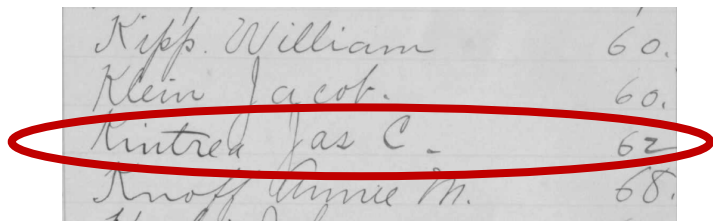 Kipp. William 60.
Klein Jacob. 60.
Kintrea Jas C. 62
Knoff Annie M. 68.